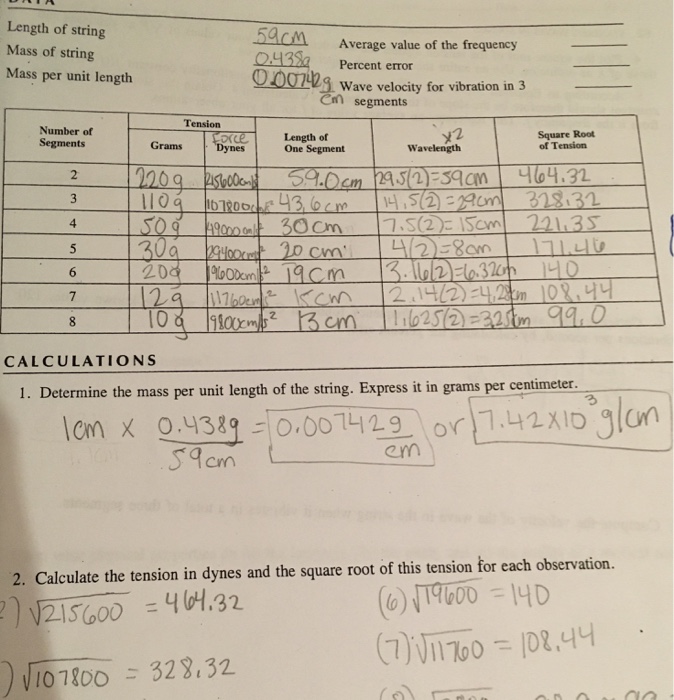 Length of string 59cm Average value of the frequency
Mass of string 0.438g Percent error
Mass per unit length 0.00742g Wave velocity for vibration in 3
cm segments
Tension
Number of Segments Grams Force Dynes Length of One Segment x2 Wavelength Square Root of Tension
2 220g 215600cm/s² 59.0cm 29.5(2)=59cm 464.32
3 110g 107800cm/s² 43.6cm 14.5(2)=29cm 328.32
4 50g 49000cm/s² 30cm 7.5(2)=15cm 221.35
5 30g 29400cm/s² 20cm 4(2)=8cm 171.46
6 20g 19600cm/s² 19cm 3.16(2)=6.32cm 140
7 12g 11760cm/s² 15cm 2.14(2)=4.28cm 108.44
8 10g 9800cm/s² 13cm 1.625(2)=3.25cm 99.0
CALCULATIONS
1. Determine the mass per unit length of the string. Express it in grams per centimeter.
1cm x 0.438g = 0.00742g or 7.42x10³ g/cm
59cm cm
2. Calculate the tension in dynes and the square root of this tension for each observation.
2) √215600 = 464.32 (6) √19600 = 140
(7) √11760 = 108.44
) √107800 = 328.32